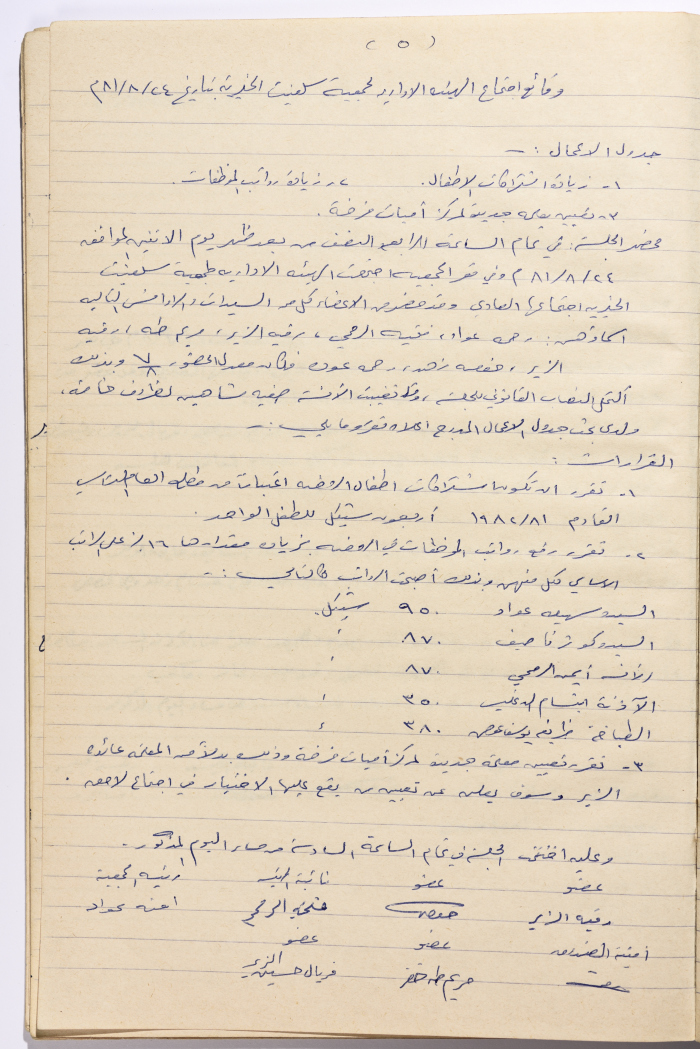 ( ٥ )
وقائع اجتماع الهيئه الاداريه لجمعية سلفيت الخيرية بتاريخ ٨١/٨/٢٤م
جدول الاعمال : -
١- زيادة اشتراكات الاطفال. ٢- زيادة رواتب الموظفات.
٣- تعيين معلمه جديدة لمركز أميات فرخة.
محضر الجلسة: في تمام الساعة الرابعه والنصف من بعد ظهر يوم الاثنين الموافق
٨١/٨/٢٤ م وفي مقر الجمعيه اجتمعت الهيئه الاداريه لجمعية سلفيت
الخيريه اجتماعها العادي وقد حضر من الاعضاء كل من السيدات والاوانس التاليه
اسماؤهن: عواد، فتحيه الرمحي، رقيه الزير، مريم طه، رقيه
الزير، حفصه زهد، عوده فكان معدل الحضور ٧/٨ وبذلك
أكتمل النصاب القانوني للجلسة، وقد تغيبت الآنسة صفيه شاهين لظروف خاصة،
ولدى بحث جدول الاعمال المدرج اعلاه تقرر ما يلي : -
القرارات :
١- تقرر ان تكون اشتراكات اطفال الروضه اعتباراً من مطلع العام الدراسي
القادم ١٩٨٢/٨١ أربعون شيكل للطفل الواحد.
٢- تقرر رفع رواتب الموظفات في الروضه بزيادة مقدارها ١٦٪ على الراتب
الاساسي لكل منهن وبذلك أصبحت الرواتب كالتالي : -
السيده سهيله عواد ٩٥٠ شيكل.
السيده كوثر ناصيف ٨٧٠ "
الآنسه الرمحي ٨٧٠ "
الآذنة ابتسام ٣٥٠ "
الطباخة ٣٨٠ "
٣- تقرر تعيين معلمة جديدة لمركز أميات فرخة وذلك بدلاً من المعلمه عائده
الزير وسوف يعلن عن تعيين من يقع عليها الاختيار في اجتماع لاحق.
وعليه اختتمت الجلسة في تمام الساعة السادسة من مساء اليوم المذكور.
عضو عضو نائبة الرئيسه رئيسه الجمعية
رقيه الزير حفصه فتحية الرمحي امنه عواد
أمينة الصندوق عضو عضو
مريم طه فريال حسين الزير